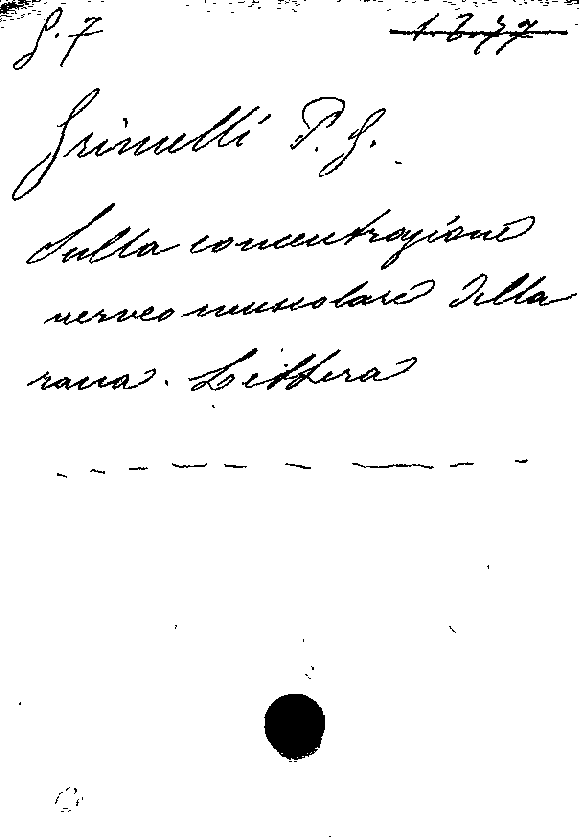 G. 7 1277
Grimelli P. G.
Sulla concentrazione
nerveo muscolare della
rana. Lettera